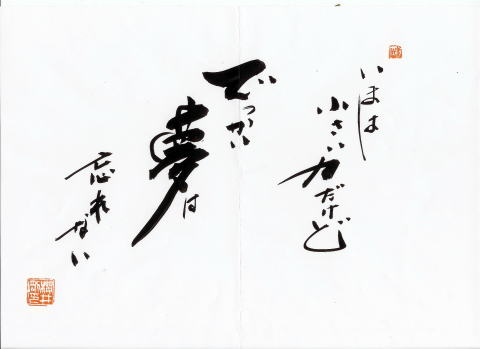 いまは
小さい
力だけど
でっかい
夢は
忘れない